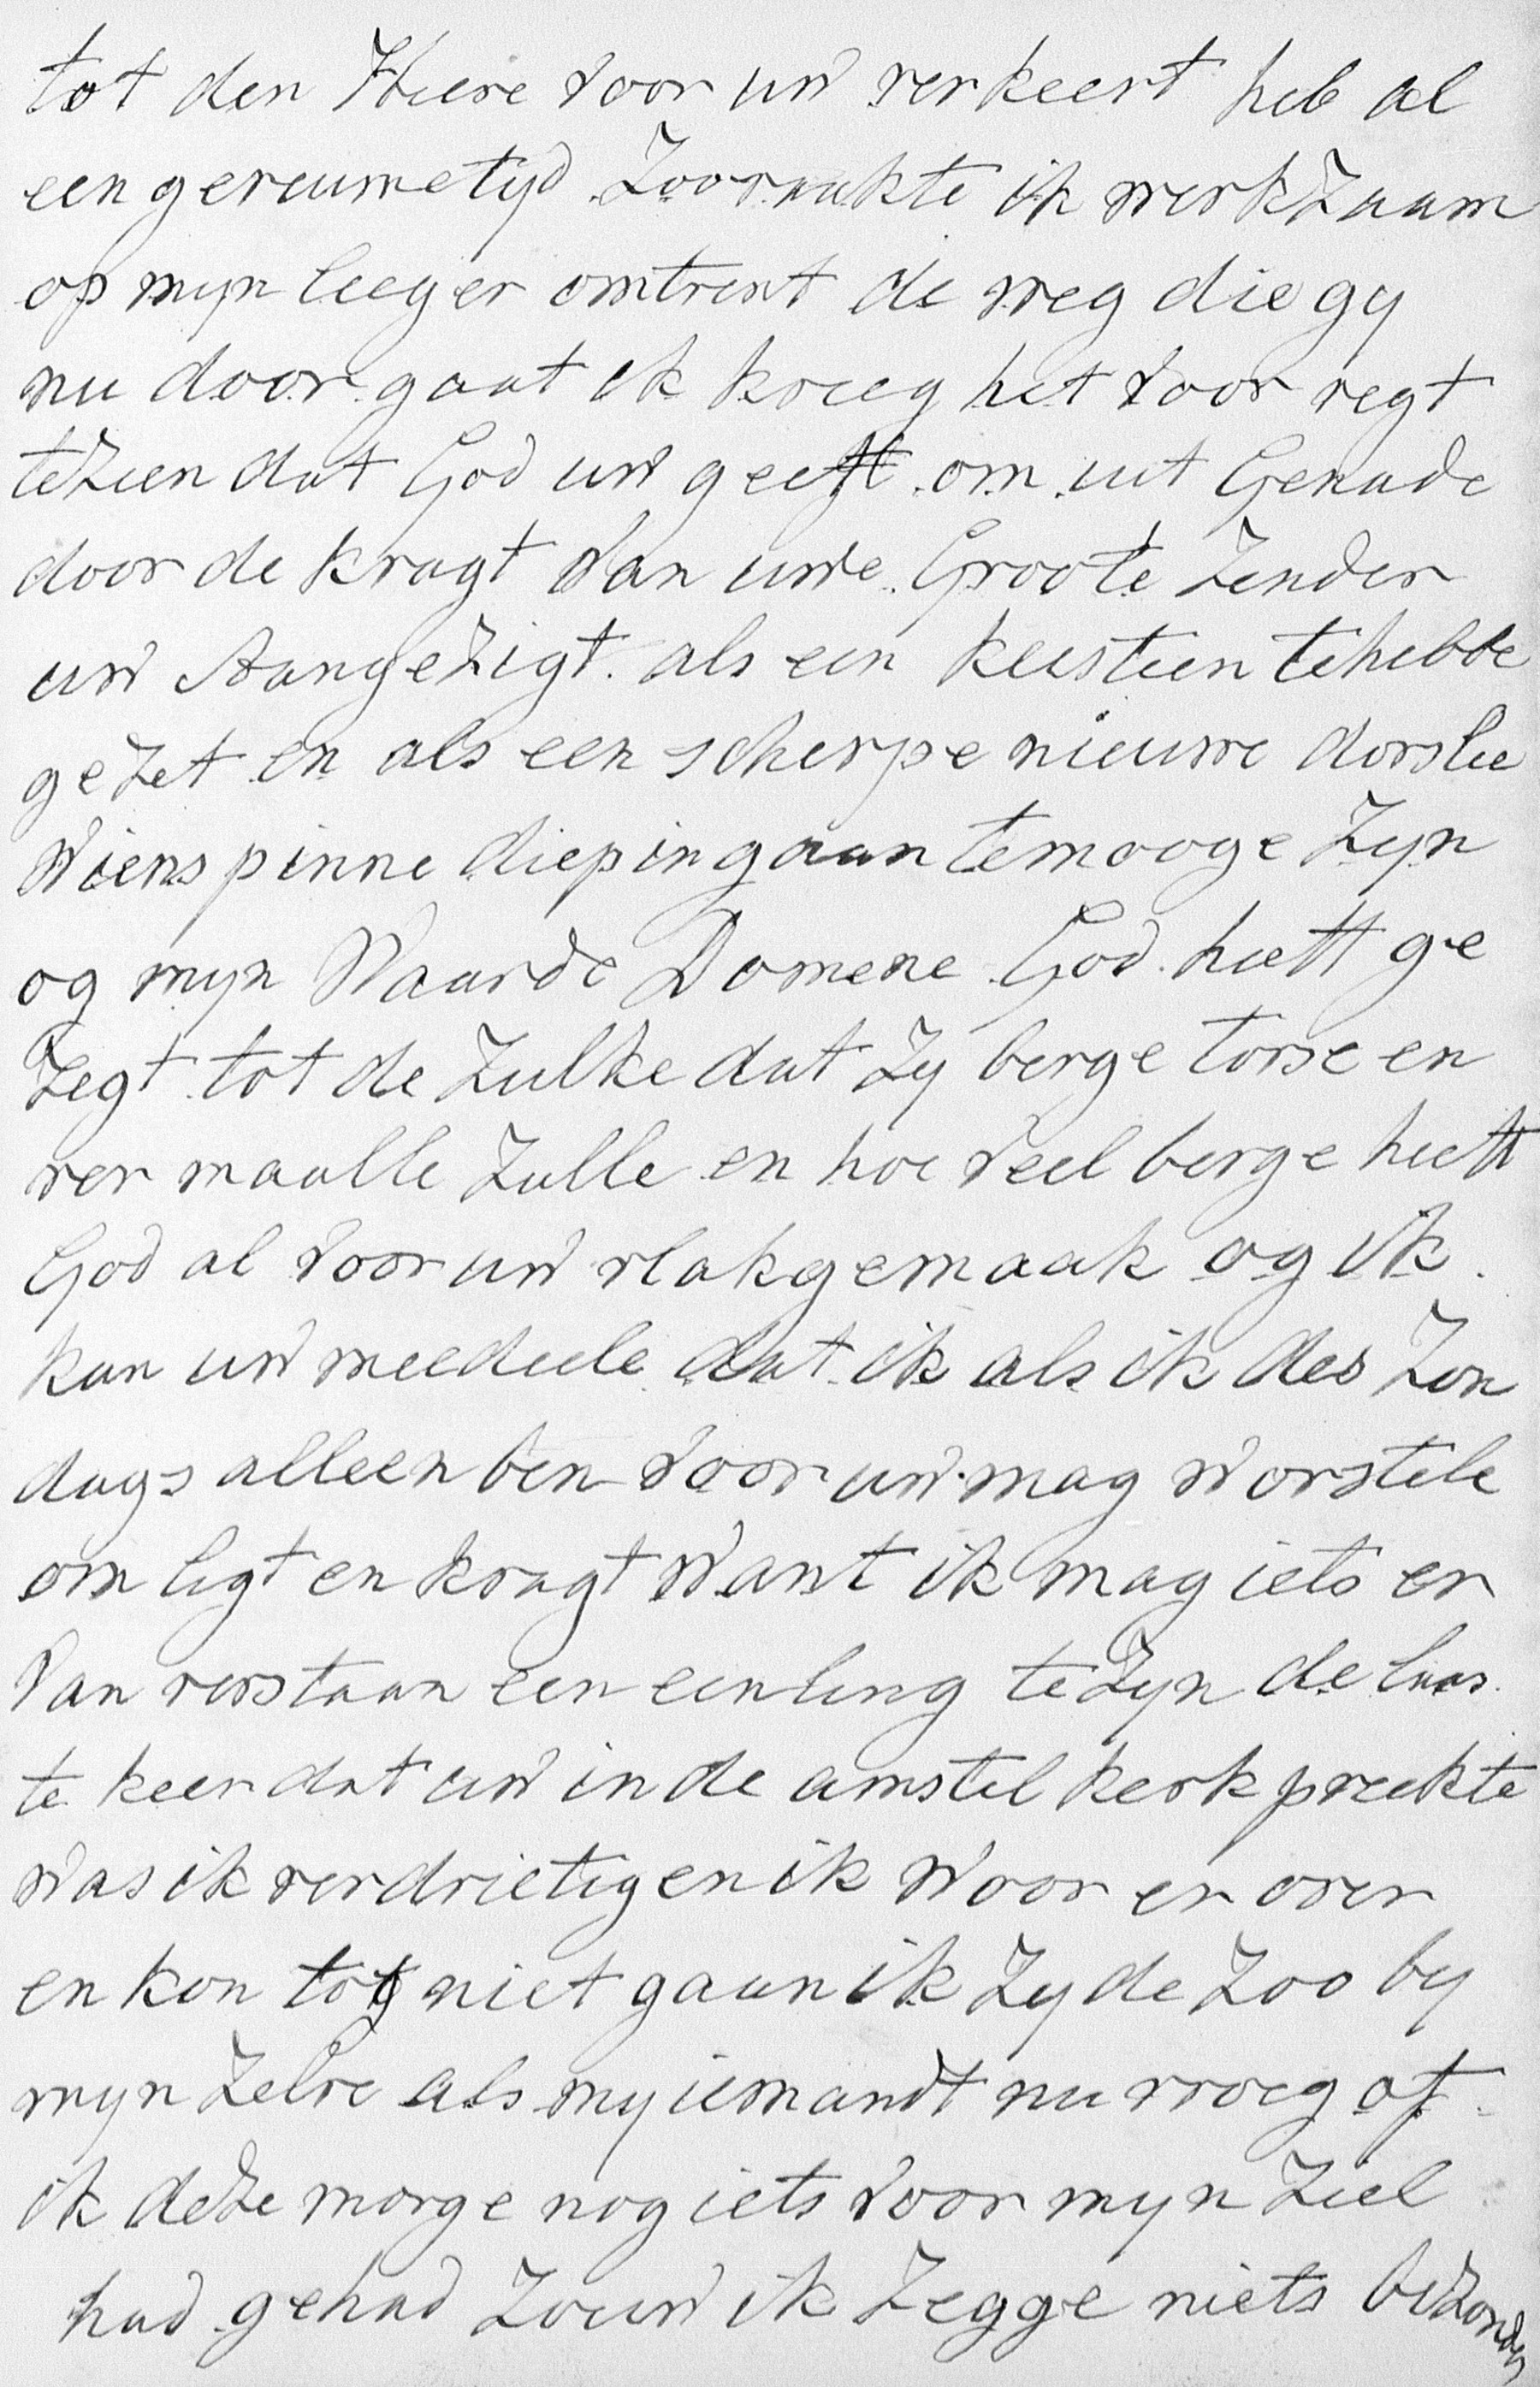 tot den Heere voor uw verkeert heb al
een gereume tyd Zoo raakte ik werkZaam
op myn leeger omtrent de weg die gy
nu door gaat ik kreeg het voor regt
teZien dat God uw geeft om uit Genade
door de kragt van uwe Groote Zender
uw AangeZigt als een keisteen tehebbe
geZet en als een scherpe nieuwe dorslee
wiens pinne diep in gaan temooge Zyn
og myn Waarde Domene God heeft ge
Zegt tot de Zulke dat Zy berge torse en
ver maalle Zulle en hoe veel berge heeft
God al voor uw vlakgemaak og ik
kan uw meedeele dat ik als ik des Zon
dags alleen ben voor uw mag worstele
om ligt en kragt want ik mag iets er
van verstaan een eenling teZyn de laas
te keer dat uw in de amstel kerk preekte
was ik verdrietig en ik woor er over
en kon tog niet gaan ik Zyde Zoo by
myn Zelve als my iemandt nu vroeg of
ik deZe morge nog iets voor myn Ziel
had gehad Zouw ik Zegge niets beZonder